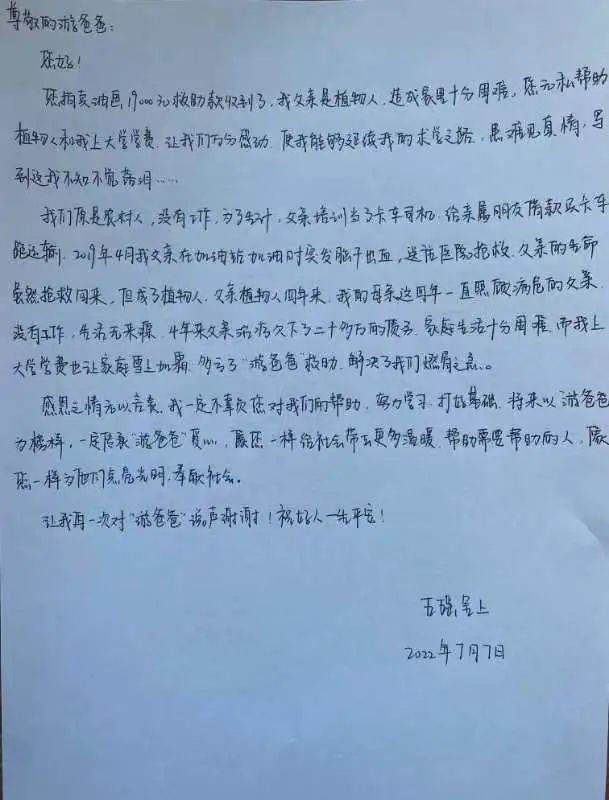 尊敬的游爸爸：
您好！
您拍卖油画，19000元救助款收到了，我父亲是植物人，造成家里十分困难，您无私帮助
植物人和我上大学学费，让我们万分感动，使我能够延续我的求学之路，患难见真情，写
到这我不知不觉落泪……
我们原是农村人，没有工作，为了生计，父亲培训当了卡车司机，给亲属朋友借款买卡车
跑运输，2019年4月我父亲在加油站加油时突发脑干出血，送往医院抢救，父亲的生命
虽然抢救回来，但成了植物人，父亲植物人四年来，我的母亲这四年一直照顾病危的父亲，
没有工作，生活无来源，4年来父亲治病欠下了二十多万的债务，家庭生活十分困难，而我上
大学学费也让家庭雪上加霜，多亏了“游爸爸”救助，解决了我们燃眉之急。
感恩之情无以言表，我一定不辜负您对我们的帮助，努力学习，打好基础，将来以“游爸爸”
为榜样，一定传承“游爸爸”爱心，像您一样给社会带去更多温暖，帮助需要帮助的人，像
您一样为他们点亮光明，奉献社会。
让我再一次对“游爸爸”说声谢谢！祝好人一生平安！
呈上
2022年7月7日